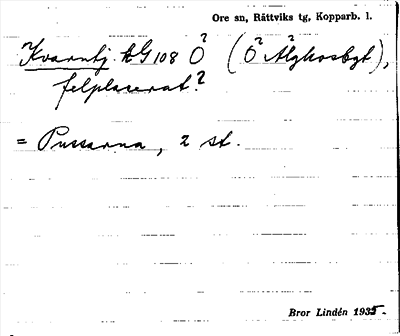 Ore sn, Rättviks tg, Kopparb. l.
Kvarntj. AG 108 Ö? (Ö? Älghosbgt?),
felplacerat?
= Pussarna, 2 st.
Bror Lindén 1935.